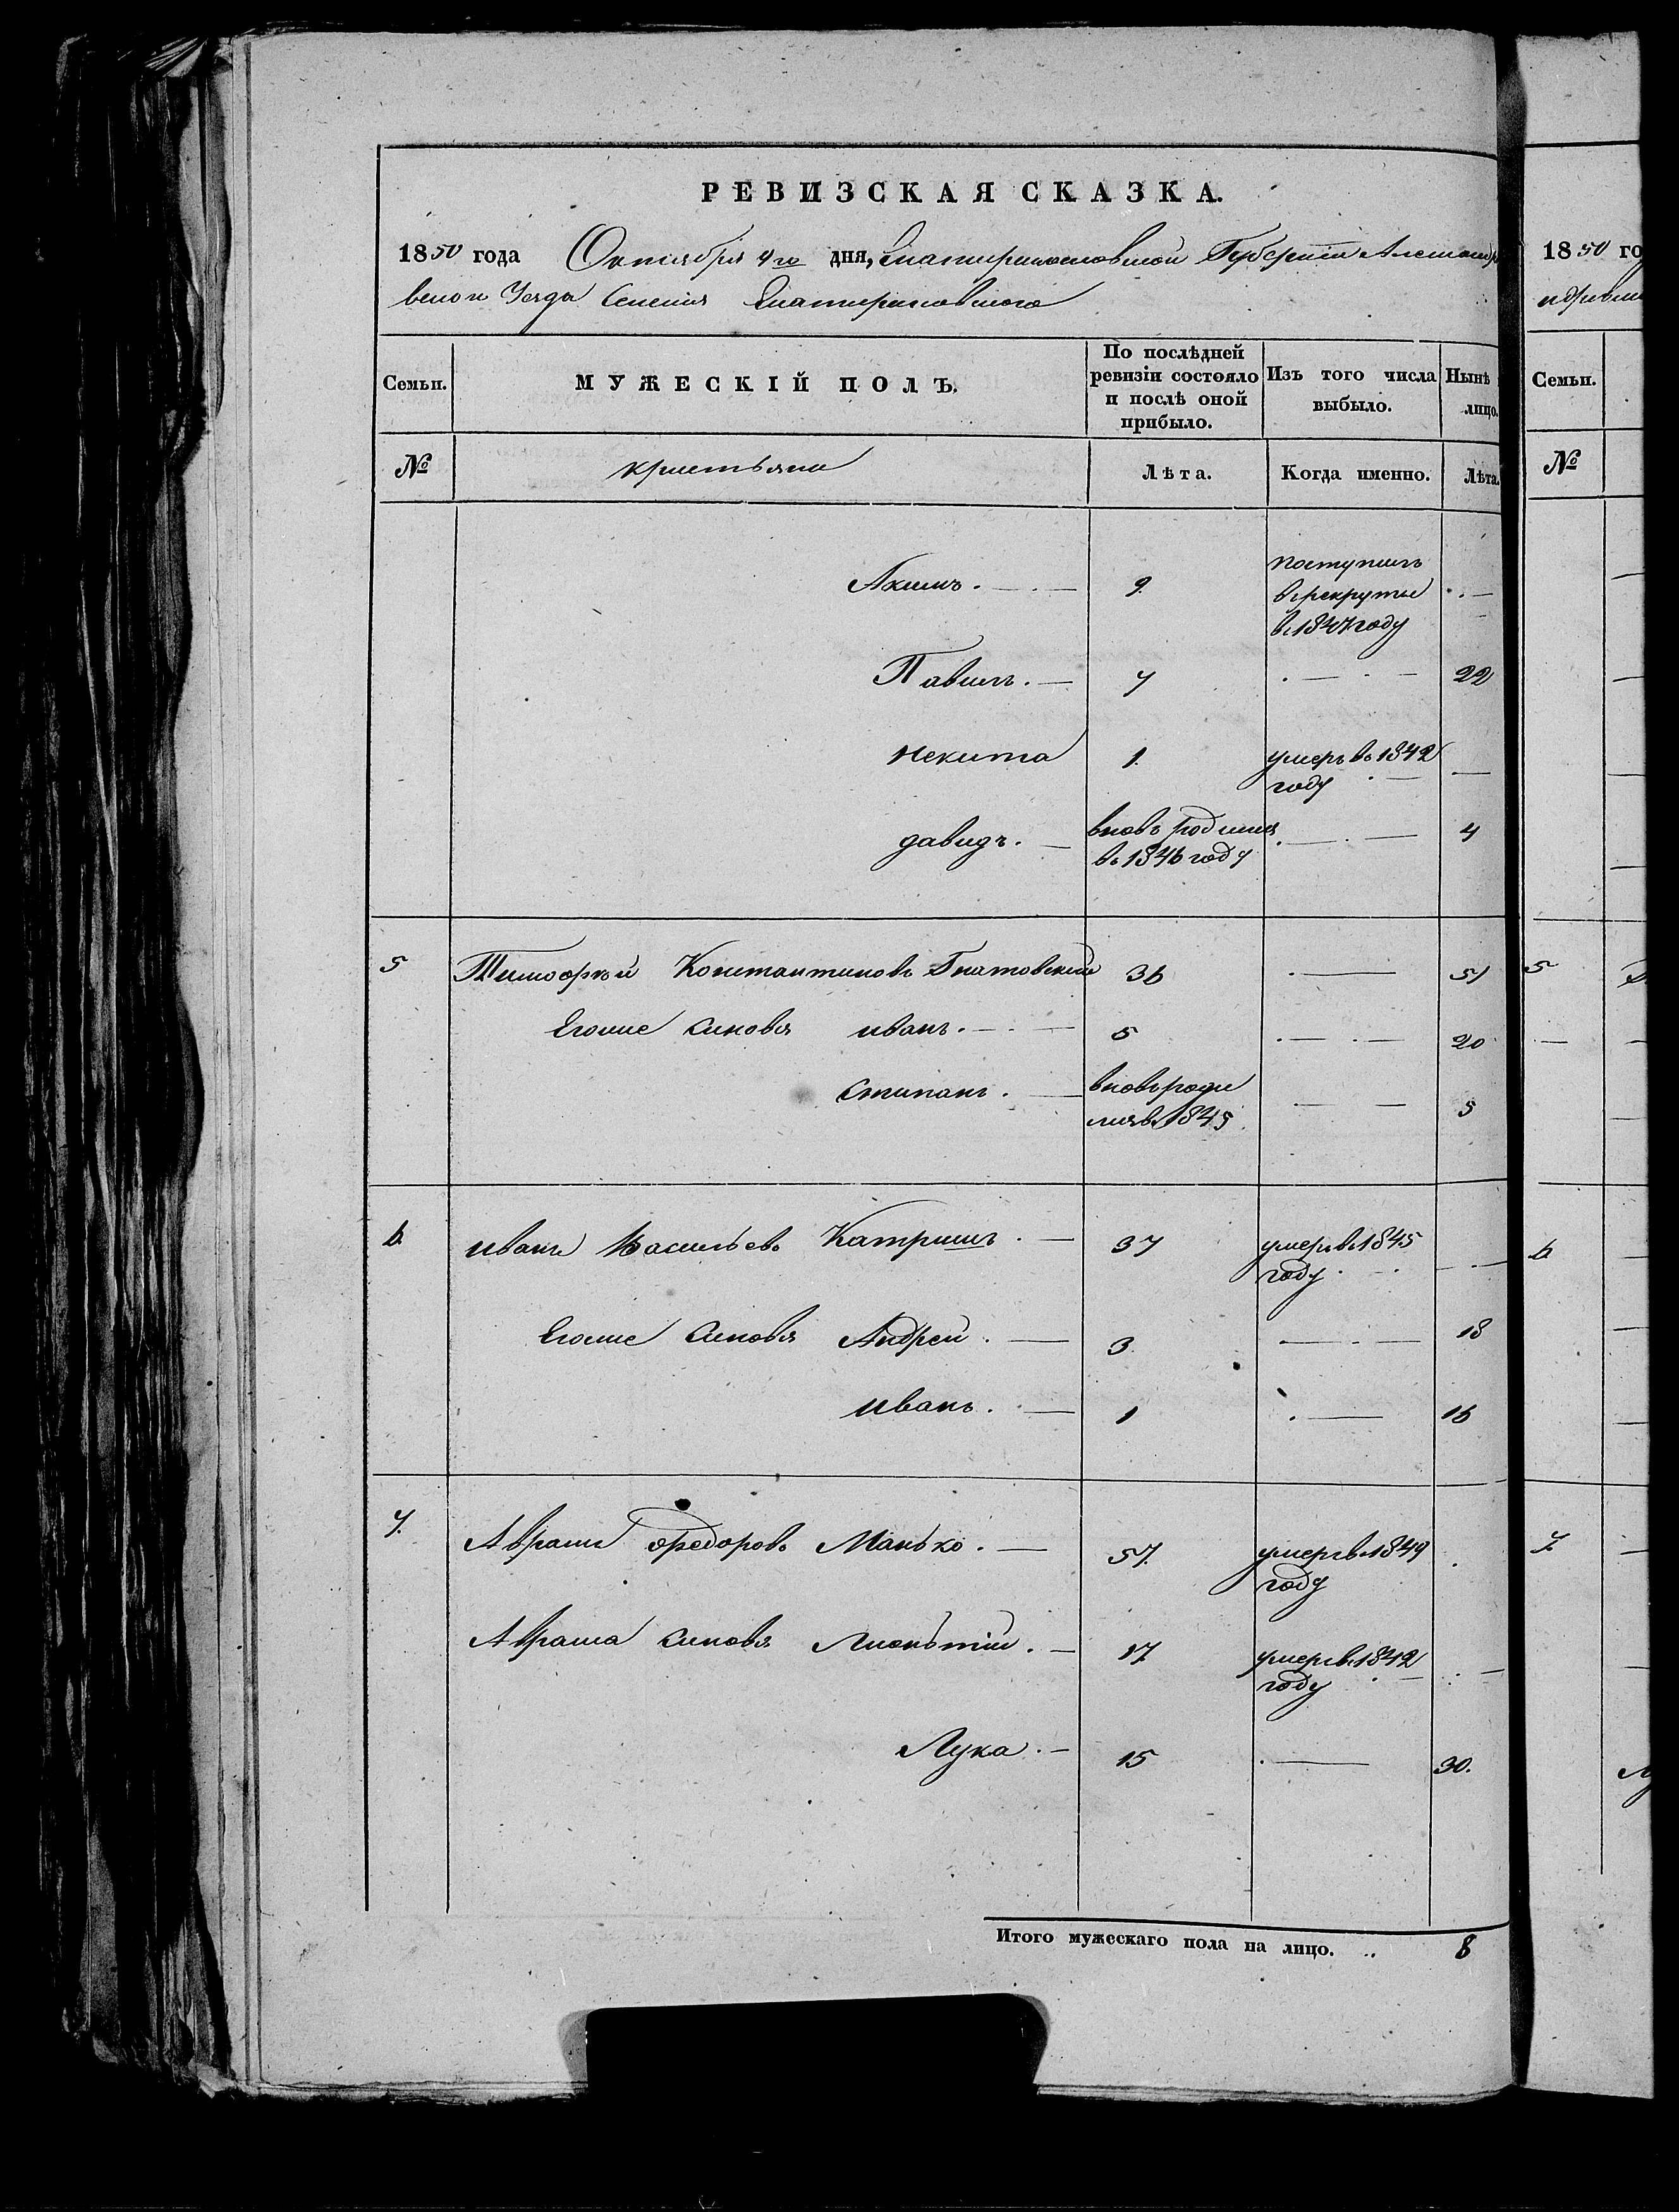 РЕВИЗСКАЯ СКАЗКА.
1850 года Октября 4го дня, Екатеринославской Губернии Александр
вского Уезда Селения Екатериновского
Семьи. МУЖЕСКІЙ ПОЛЪ. По послѣдней ревизіи состояло и послѣ оной прибыло. Изъ того числа выбыло. Нынѣ лицо.
№ крестьяне Лѣта. Когда именно. Лѣта.
Акимъ. 9. поступилъ
в рекруты
в 1847 году
Павилъ. 7 22
Некита 1. умеръ въ 1842
году
давидъ. вновь родился 4
въ 1846 году
5 Тимофѣй Константиновъ 36 51
Егоже синовя иванъ. 5 20
Стипанъ. вновь роди
лся в 1845 5
6 иванъ Васильевъ Катришъ. 37 умеръ в 1845
году
Егоже Синовя Андрей. 3. 18
иванъ. 1 16
7. Аврамъ Федоровъ Манько. 57. умеръ в 1849
году
Аврама синовя Лионътий. 17. умеръ в 1842
году
Лука. 15 30.
Итого мужескаго пола на лицо. .. 8
1850 го
Семьи.
№
5
6
7